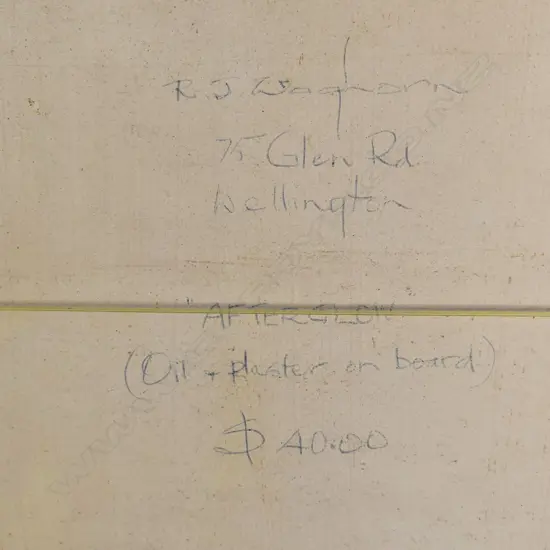 R J Waghorn
75 Glen Rd
Wellington
AFTERGLOW
(Oil + plaster on board)
$ 40.00